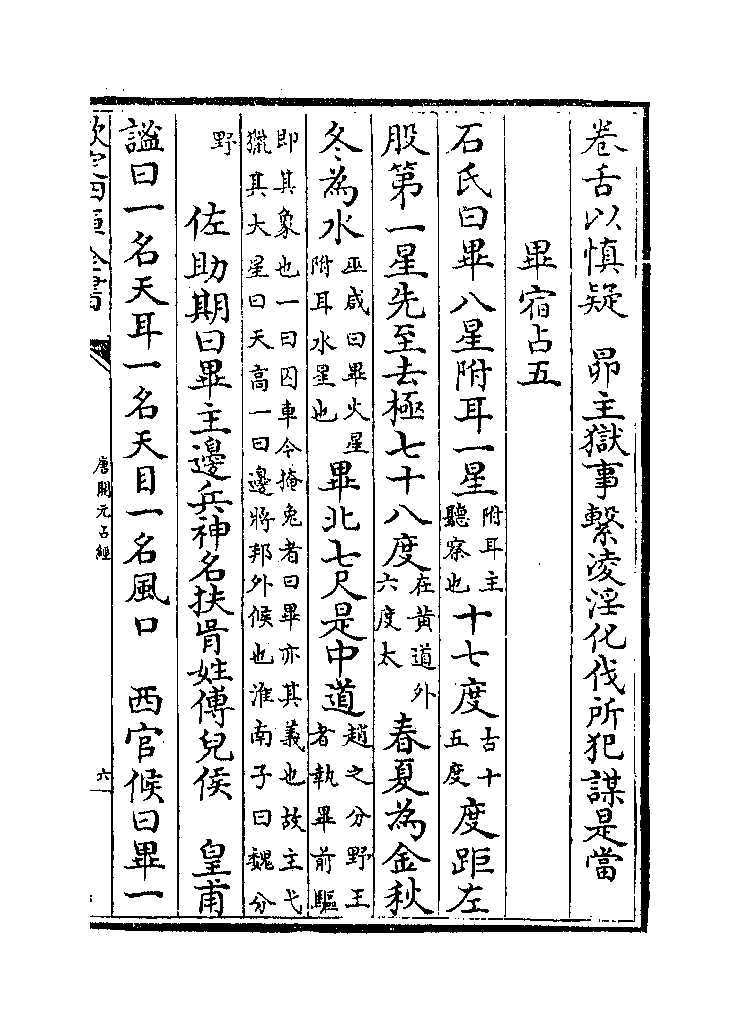 卷舌以慎疑　昴主獄事繫淩淫化伐所犯謀是當
畢宿占五
石氏曰畢八星附耳一星附耳主聽察也十七度古十五度度距左
股第一星先至去極七十八度在黃道外六度太春夏為金秋
冬為水巫咸曰畢火星附耳水星也畢北七尺是中道趙之分野王者執畢前驅
即其象也一曰囚車今掩兔者曰畢亦其義也故主弋獵其大星曰天高一曰邊將邦外候也淮南子曰魏分
野　佐助期曰畢主邊兵神名扶胥姓傅兒侯　皇甫
謐曰一名天耳一名天目一名風口　西官候曰畢一
欽定四庫全書
唐開元占經
六